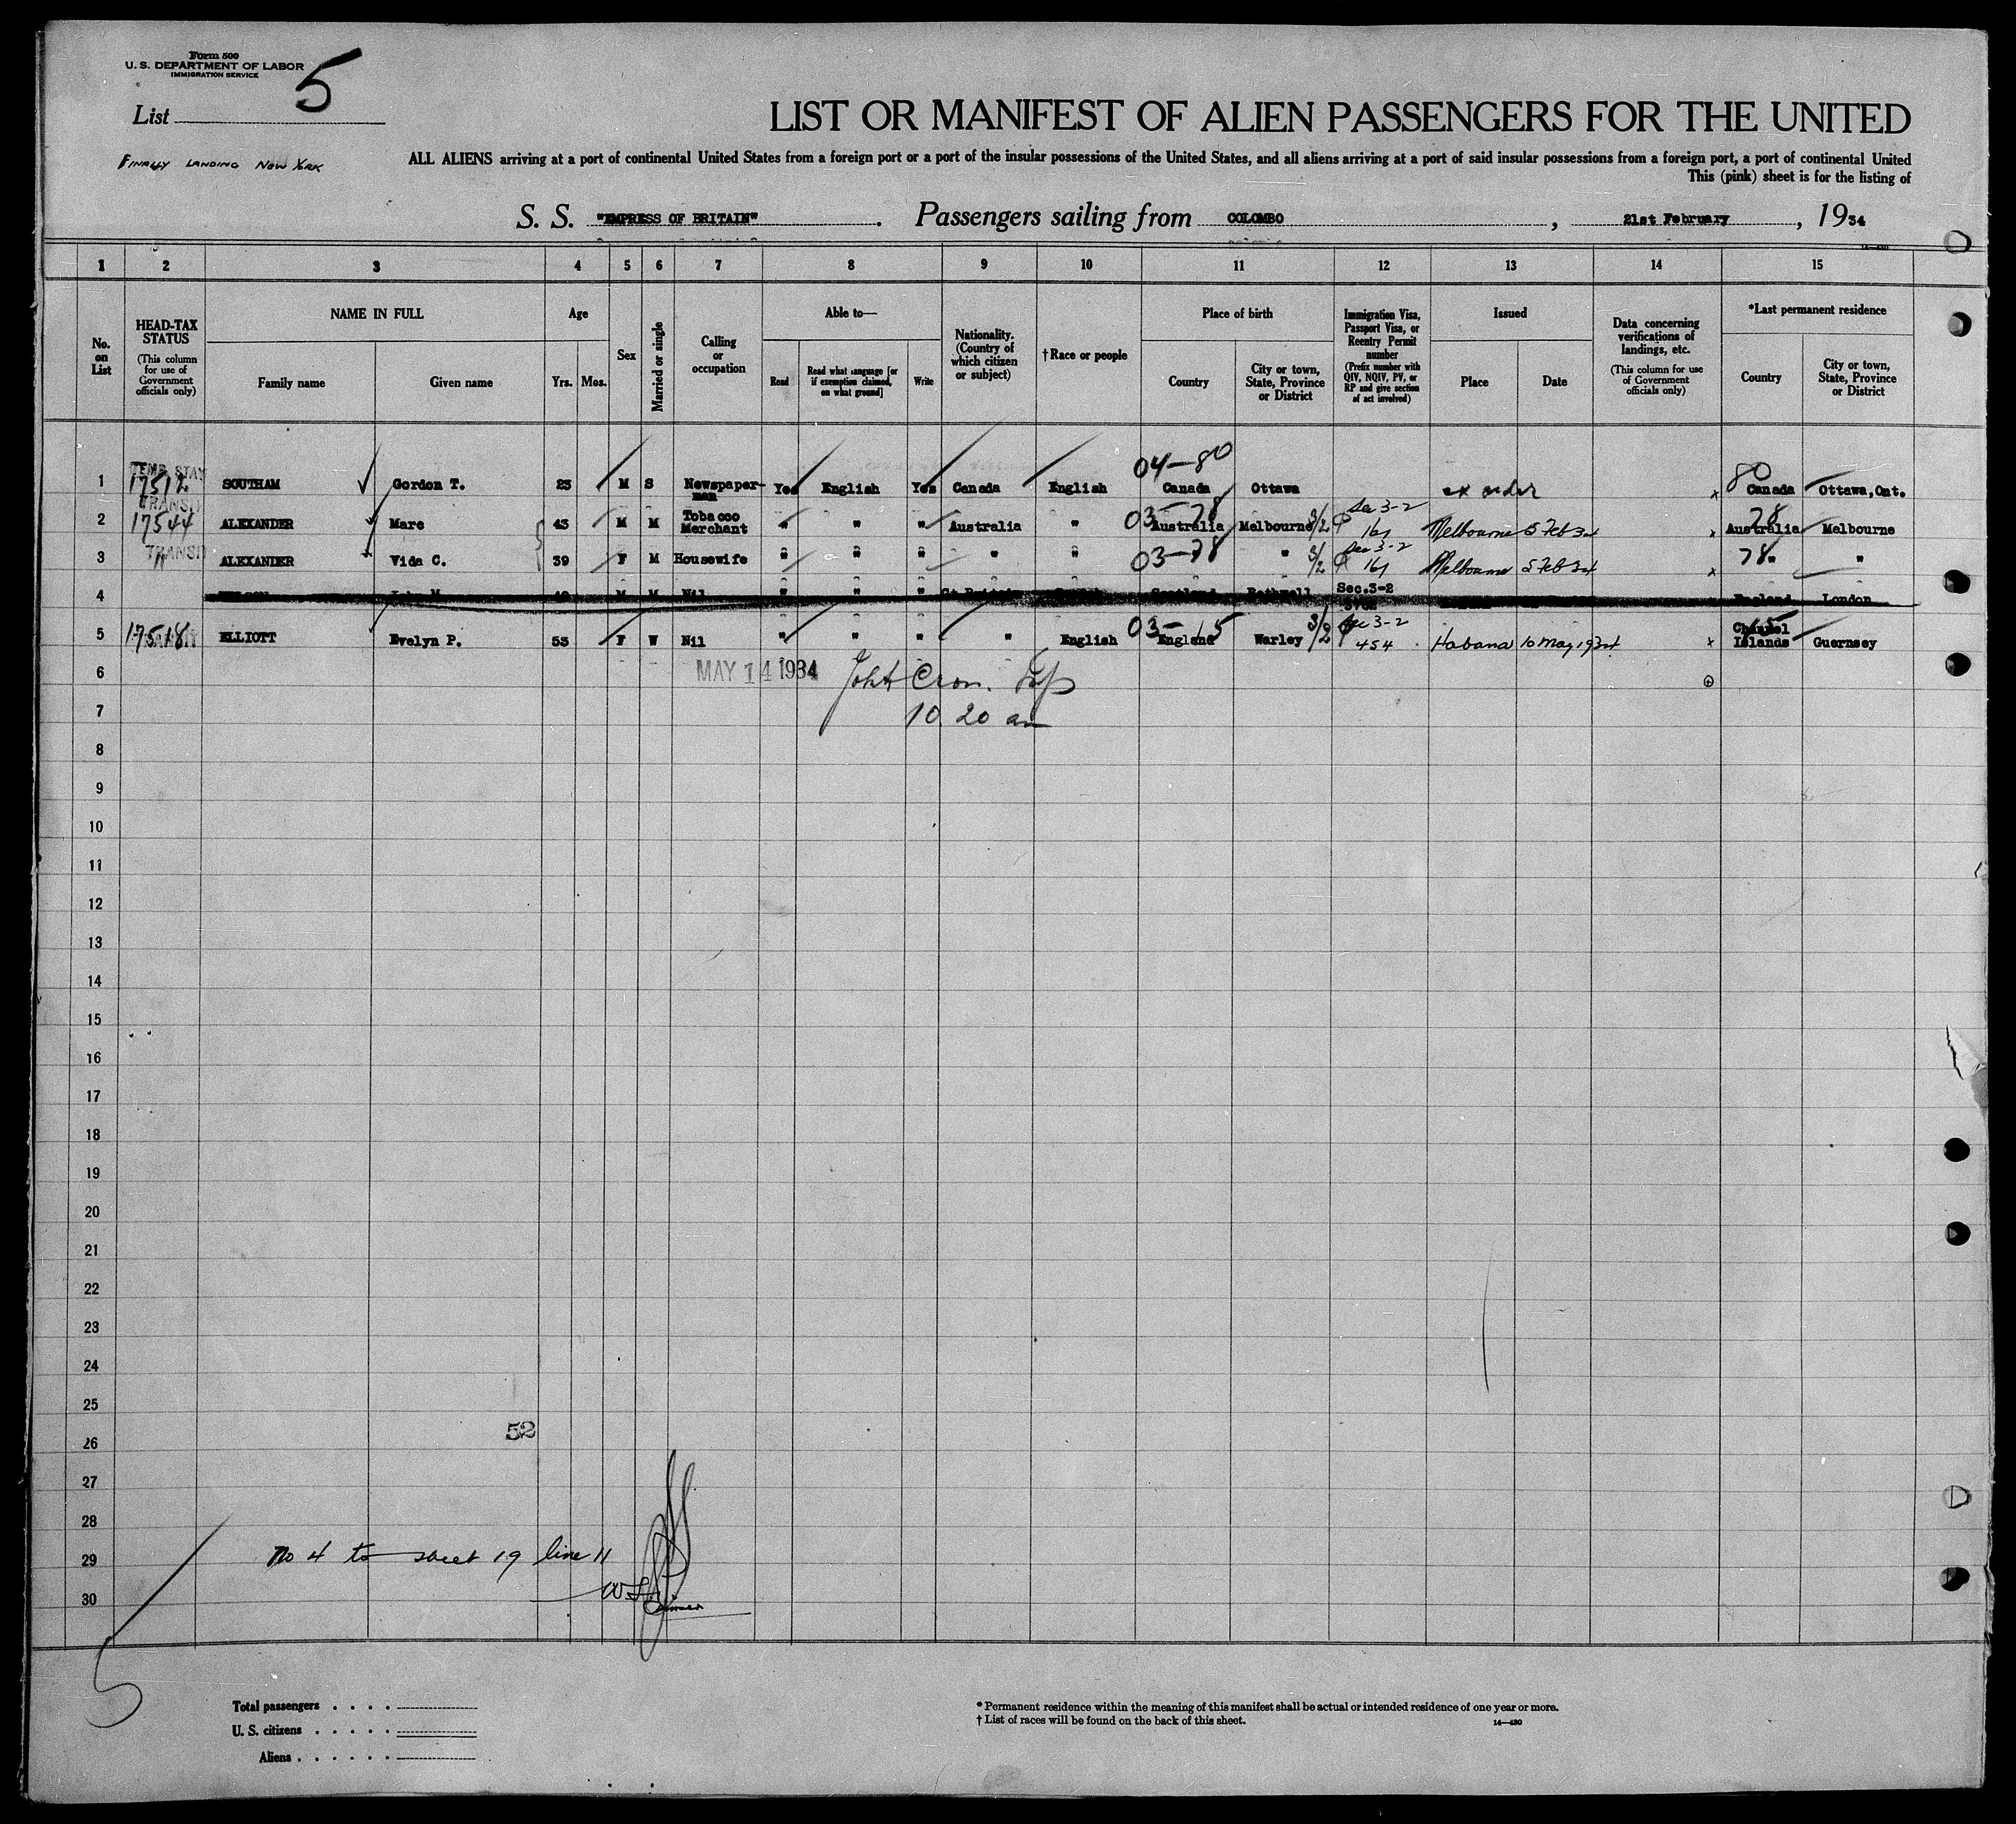 Form 500
U. S. DEPARTMENT OF LABOR
IMMIGRATION SERVICE
List 5
FINALLY LANDING NEW YORK
LIST OR MANIFEST OF ALIEN PASSENGERS FOR THE UNITED
ALL ALIENS arriving at a port of continental United States from a foreign port or a port of the insular possessions of the United States, and all aliens arriving at a port of said insular possessions from a foreign port, a port of continental United
This (pink) sheet is for the listing of
S. S. "EMPRESS OF BRITAIN". Passengers sailing from COLOMBO, 21st February, 1934
1 2 3 4 5 6 7 8 9 10 11 12 13 14 15
No. on List
HEAD-TAX STATUS (This column for use of Government officials only)
NAME IN FULL Family name Given name
Age Yrs. Mos.
Sex
Married or single
Calling or occupation
Able to— Read Read what language [or if exemption claimed, on what ground] Write
Nationality. (Country of which citizen or subject)
†Race or people
Place of birth Country City or town, State, Province or District
Immigration Visa, Passport Visa, or Reentry Permit number (Prefix number with QIV, NQIV, PV, or RP and give section of act involved)
Issued Place Date
Data concerning verifications of landings, etc. (This column for use of Government officials only)
*Last permanent residence Country City or town, State, Province or District
04-80 80
1 TEMP. STAY 17512 SOUTHAM Gordon T. 23 M S Newspaper-man Yes English Yes Canada English Canada Ottawa ex order x Canada Ottawa, Ont.
2 TRANSIT 17544 ALEXANDER Marc 43 M M Tobacco Merchant " " " Australia " 03-78 Australia Melbourne 3/2 Sec 3-2 161 Melbourne 5 Feb 34 x 78 Australia Melbourne
3 TRANSIT " ALEXANDER Vida C. 39 F M Housewife " " " " " 03-78 " 3/2 Sec 3-2 161 Melbourne 5 Feb 34 x 78 " "
4 John M. M M Nil " " " Gt.Britain Scotland Rothwell Sec.3-2 England London
5 17518 ELLIOTT Evelyn P. 53 F W Nil " " " " English 03-15 England Warley 3/2 Sec 3-2 454 Habana 10 May 1934 x Channel Islands 15 Guernsey
6 MAY 14 1934
7 10 20 am
8
9
10
11
12
13
14
15
16
17
18
19
20
21
22
23
24
25
26 52
27
28
29 No 4 to sheet 19 line 11
30
5
Total passengers . . . . .
U. S. citizens . . . . .
Aliens . . . . . .
* Permanent residence within the meaning of this manifest shall be actual or intended residence of one year or more.
† List of races will be found on the back of this sheet.
14—430